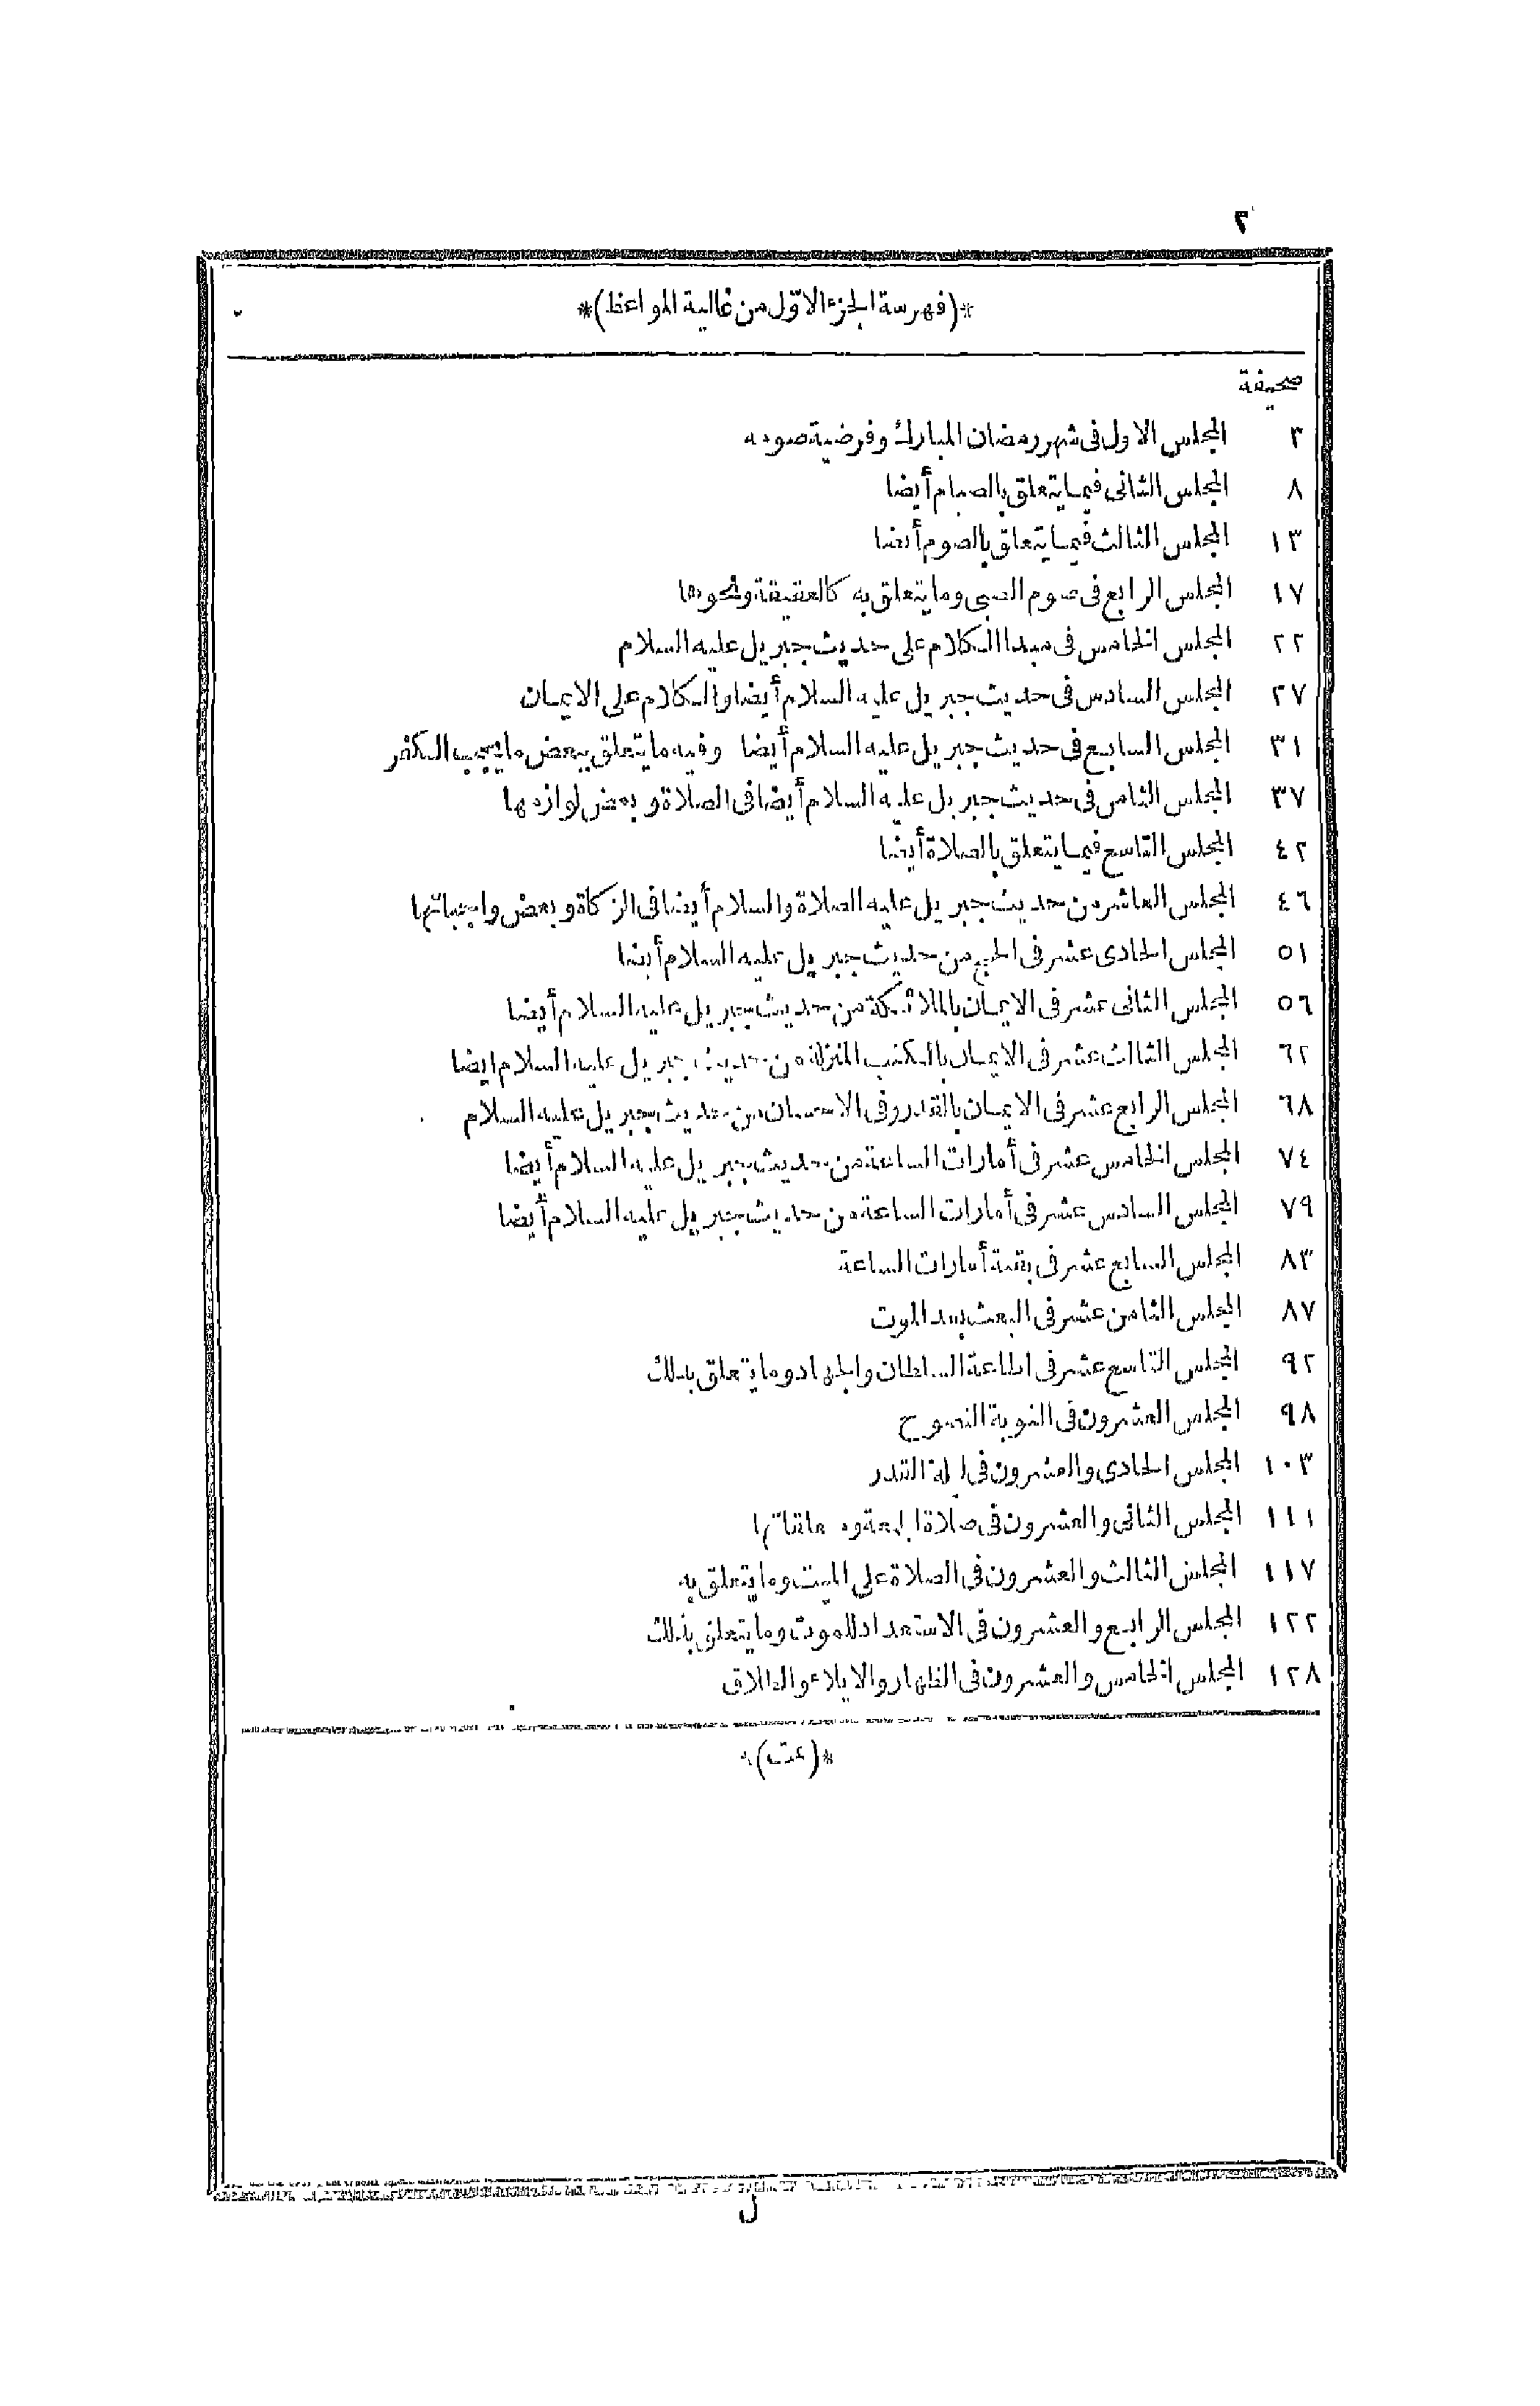 ٢
*(فهرسة الجزء الاوّل من غالية المواعظ)*
صحيفة
٣ المجلس الاول فى شهر رمضان المبارك وفرضية صومه
٨ المجلس الثانى فيما يتعلق بالصيام أيضا
١٣ المجلس الثالث فيما يتعلق بالصوم أيضا
١٧ المجلس الرابع فى صوم الصبى وما يتعلق به كالعقيقة ونحوها
٢٢ المجلس الخامس فى مبدا الكلام على حديث جبريل عليه السلام
٢٧ المجلس السادس فى حديث جبريل عليه السلام أيضا والكلام على الايمان
٣١ المجلس السابع فى حديث جبريل عليه السلام أيضا وفيه ما يتعلق ببعض ما يجيب الكفر
٣٧ المجلس الثامن فى حديث جبريل عليه السلام أيضا فى الصلاة وبعض لوازمها
٤٢ المجلس التاسع فيما يتعلق بالصلاة أيضا
٤٦ المجلس العاشر من حديث جبريل عليه الصلاة والسلام أيضا فى الزكاة وبعض واجباتها
٥١ المجلس الحادى عشر فى الحج من حديث جبريل عليه السلام أيضا
٥٦ المجلس الثانى عشر فى الايمان بالملائكة من حديث جبريل عليه السلام أيضا
٦٢ المجلس الثالث عشر فى الايمان بالكتب المنزلة من حديث جبريل عليه السلام ايضا
٦٨ المجلس الرابع عشر فى الايمان بالقدر وفى الاحسان من حديث جبريل عليه السلام
٧٤ المجلس الخامس عشر فى أمارات الساعة من حديث جبريل عليه السلام أيضا
٧٩ المجلس السادس عشر فى أمارات الساعة من حديث جبريل عليه السلام أيضا
٨٣ المجلس السابع عشر فى بقية أمارات الساعة
٨٧ المجلس الثامن عشر فى البعث بعد الموت
٩٢ المجلس التاسع عشر فى اطاعة السلطان والجهاد وما يتعلق بذلك
٩٨ المجلس العشرون فى التوبة النصوح
١٠٣ المجلس الحادى والعشرون فى ليلة القدر
١١١ المجلس الثانى والعشرون فى صلاة الجمعة ومتعلقاتها
١١٧ المجلس الثالث والعشرون فى الصلاة على الميت وما يتعلق به
١٢٢ المجلس الرابع والعشرون فى الاستعداد للموت وما يتعلق بذلك
١٢٨ المجلس الخامس والعشرون فى الظهار والايلاء والطلاق
*(تمت)*
ل